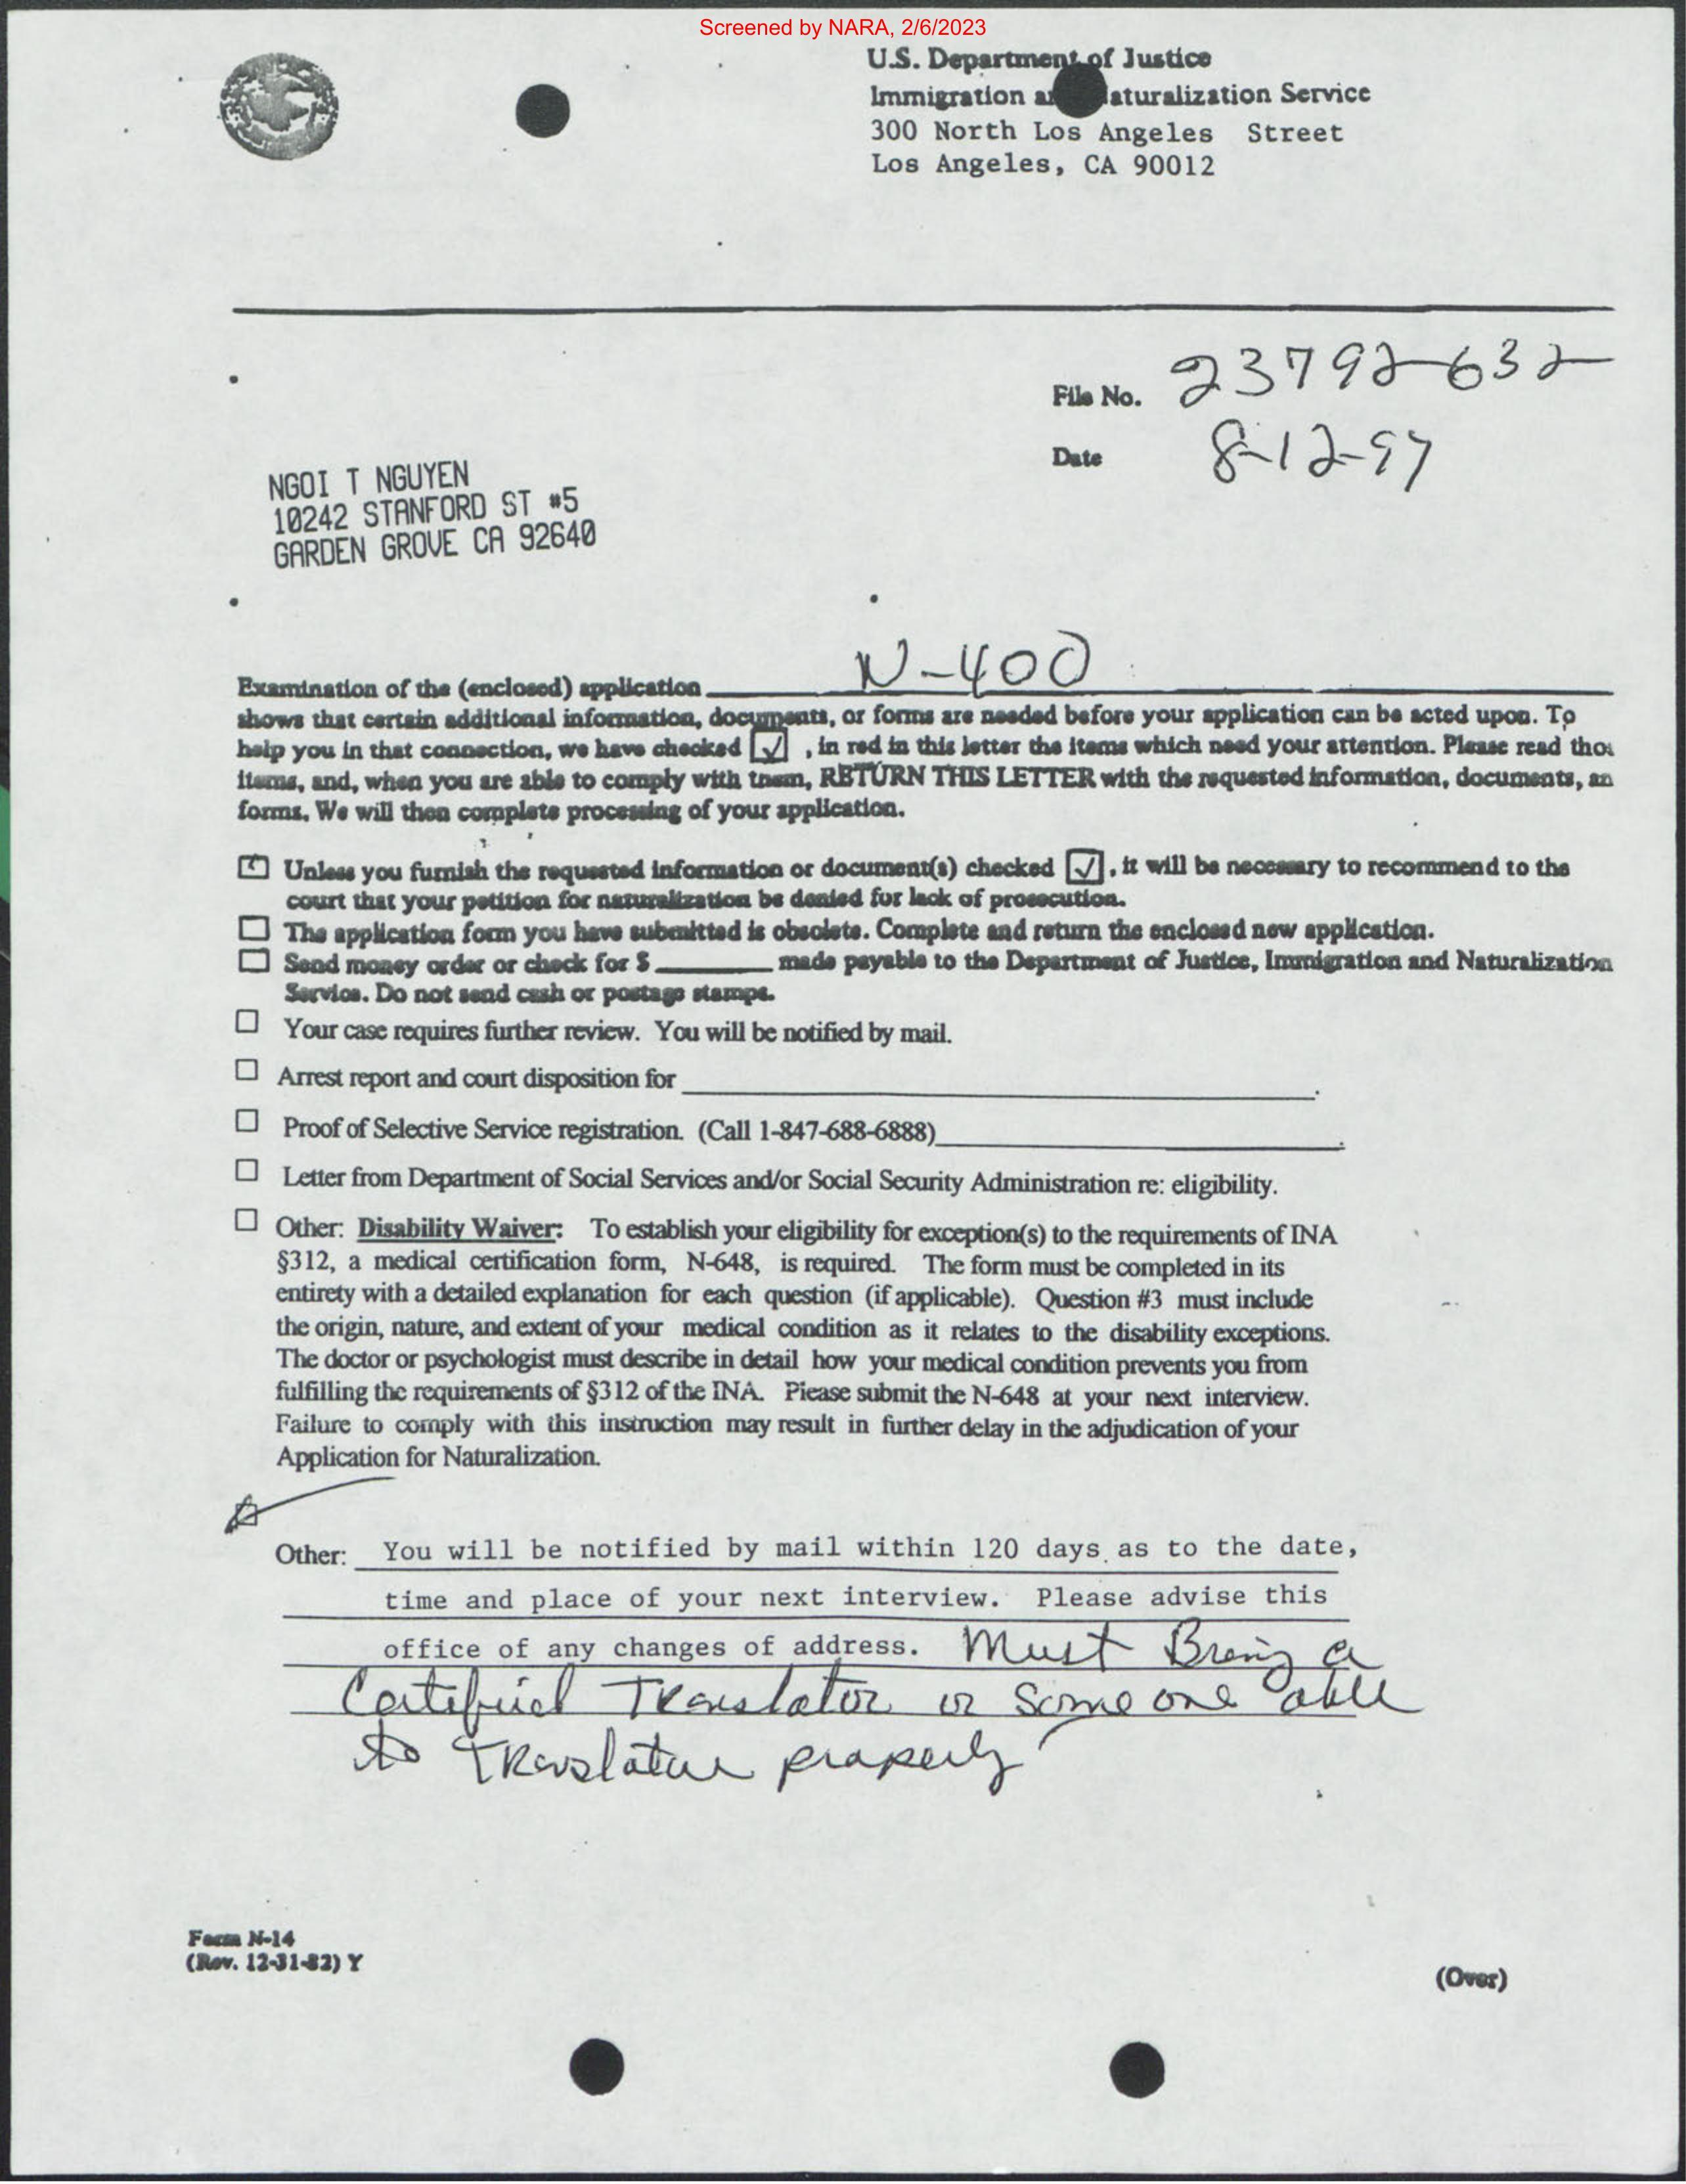 Screened by NARA, 2/6/2023
U.S. Department of Justice
Immigration a aturalization Service
300 North Los Angeles Street
Los Angeles, CA 90012
File No. 23792632
Date 8-12-97
NGOI T NGUYEN
10242 STANFORD ST #5
GARDEN GROVE CA 92640
Examination of the (enclosed) application N-400
shows that certain additional information, documents, or forms are needed before your application can be acted upon. To
help you in that connection, we have checked ☑ , in red in this letter the items which need your attention. Please read tho
items, and, when you are able to comply with them, RETURN THIS LETTER with the requested information, documents, an
forms. We will then complete processing of your application.
☑ Unless you furnish the requested information or document(s) checked ☑ , it will be necessary to recommend to the
court that your petition for naturalization be denied for lack of prosecution.
☐ The application form you have submitted is obsolete. Complete and return the enclosed new application.
☐ Send money order or check for $ ________ made payable to the Department of Justice, Immigration and Naturalization
Service. Do not send cash or postage stamps.
☐ Your case requires further review. You will be notified by mail.
☐ Arrest report and court disposition for ________.
☐ Proof of Selective Service registration. (Call 1-847-688-6888)________.
☐ Letter from Department of Social Services and/or Social Security Administration re: eligibility.
☐ Other: Disability Waiver: To establish your eligibility for exception(s) to the requirements of INA
§312, a medical certification form, N-648, is required. The form must be completed in its
entirety with a detailed explanation for each question (if applicable). Question #3 must include
the origin, nature, and extent of your medical condition as it relates to the disability exceptions.
The doctor or psychologist must describe in detail how your medical condition prevents you from
fulfilling the requirements of §312 of the INA. Please submit the N-648 at your next interview.
Failure to comply with this instruction may result in further delay in the adjudication of your
Application for Naturalization.
☑
Other: You will be notified by mail within 120 days as to the date,
time and place of your next interview. Please advise this
office of any changes of address. Must Bring a
Certified Translator or someone able
to Translatue properly
Form N-14
(Rev. 12-31-82) Y
(Over)